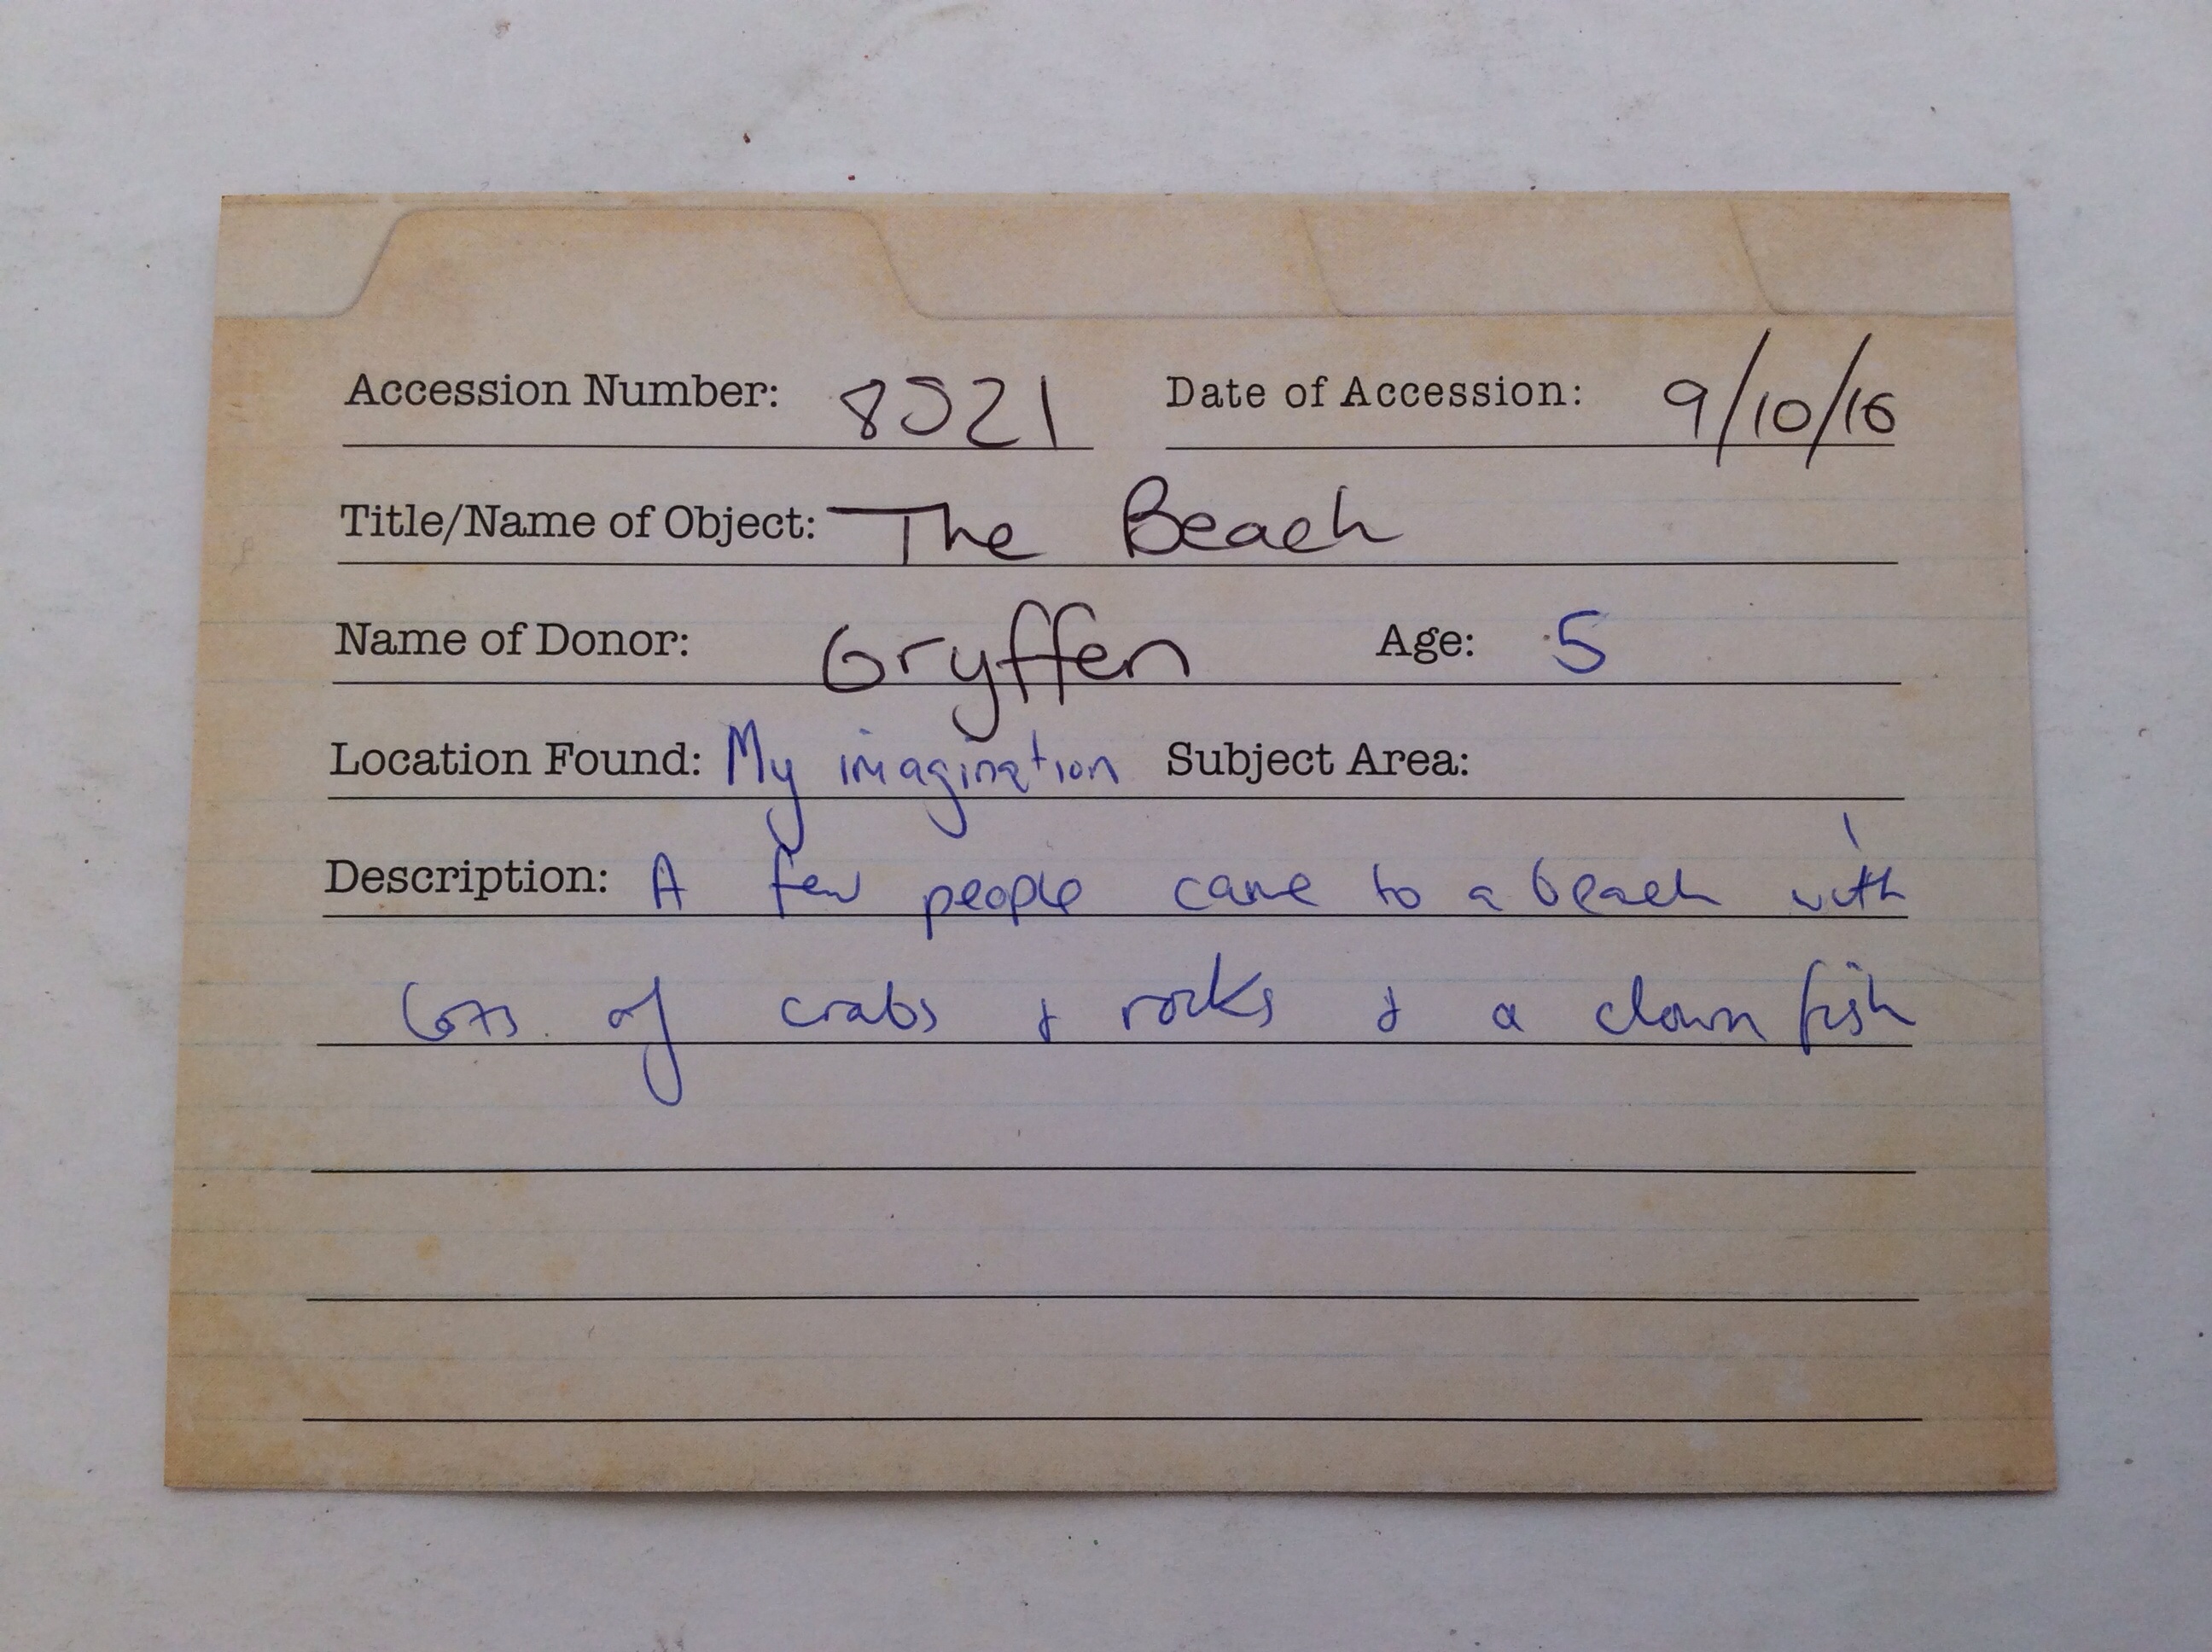 Accession Number: 8521 Date of Accession: 9/10/16
Title/Name of Object: The Beach
Name of Donor: Gryffen Age: 5
Location Found: My imagination Subject Area:
Description: A few people came to a beach with
lots of crabs & rocks & a clown fish